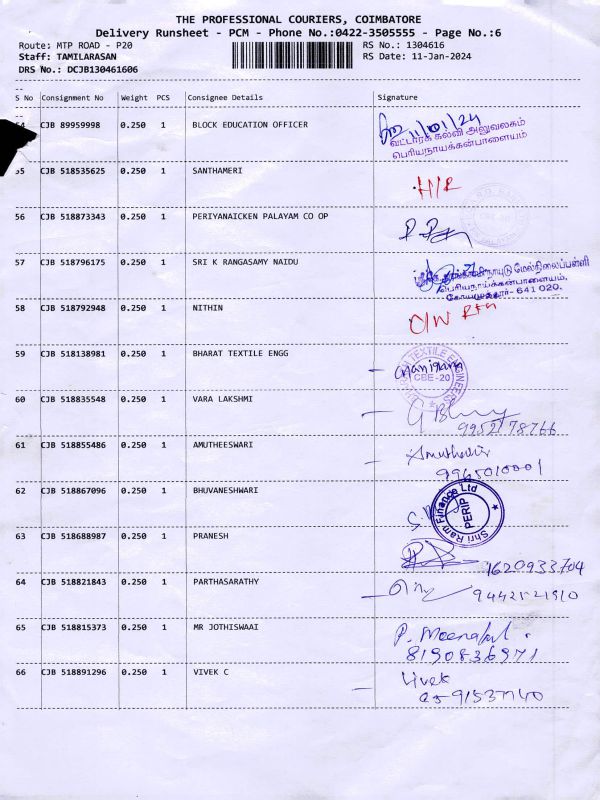 THE PROFESSIONAL COURIERS, COIMBATORE
Delivery Runsheet - PCM - Phone No.:0422-3505555 - Page No.:6
Route: MTP ROAD - P20 RS No.: 1304616
Staff: TAMILARASAN RS Date: 11-Jan-2024
DRS No.: DCJB130461606
S No Consignment No Weight PCS Consignee Details Signature
54 CJB 89959998 0.250 1 BLOCK EDUCATION OFFICER 11/01/24
வட்டாரக் கல்வி அலுவலகம்
பெரியநாயக்கன்பாளையம்
55 CJB 518535625 0.250 1 SANTHAMERI
56 CJB 518873343 0.250 1 PERIYANAICKEN PALAYAM CO OP
57 CJB 518796175 0.250 1 SRI K RANGASAMY NAIDU
மேல்நிலைப்பள்ளி
பெரியநாயக்கன்பாளையம்,
கோயமுத்தூர்- 641 020.
58 CJB 518792948 0.250 1 NITHIN
59 CJB 518138981 0.250 1 BHARAT TEXTILE ENGG
TEXTILE ENGINEERS
CBE-20
60 CJB 518835548 0.250 1 VARA LAKSHMI
9952178766
61 CJB 518855486 0.250 1 AMUTHEESWARI
9965010001
62 CJB 518867096 0.250 1 BHUVANESHWARI
Shri Ram Finance Ltd
PERIP
63 CJB 518688987 0.250 1 PRANESH
1620933704
64 CJB 518821843 0.250 1 PARTHASARATHY
9442521910
65 CJB 518815373 0.250 1 MR JOTHISWAAI
8190836971
66 CJB 518891296 0.250 1 VIVEK C
Vivek